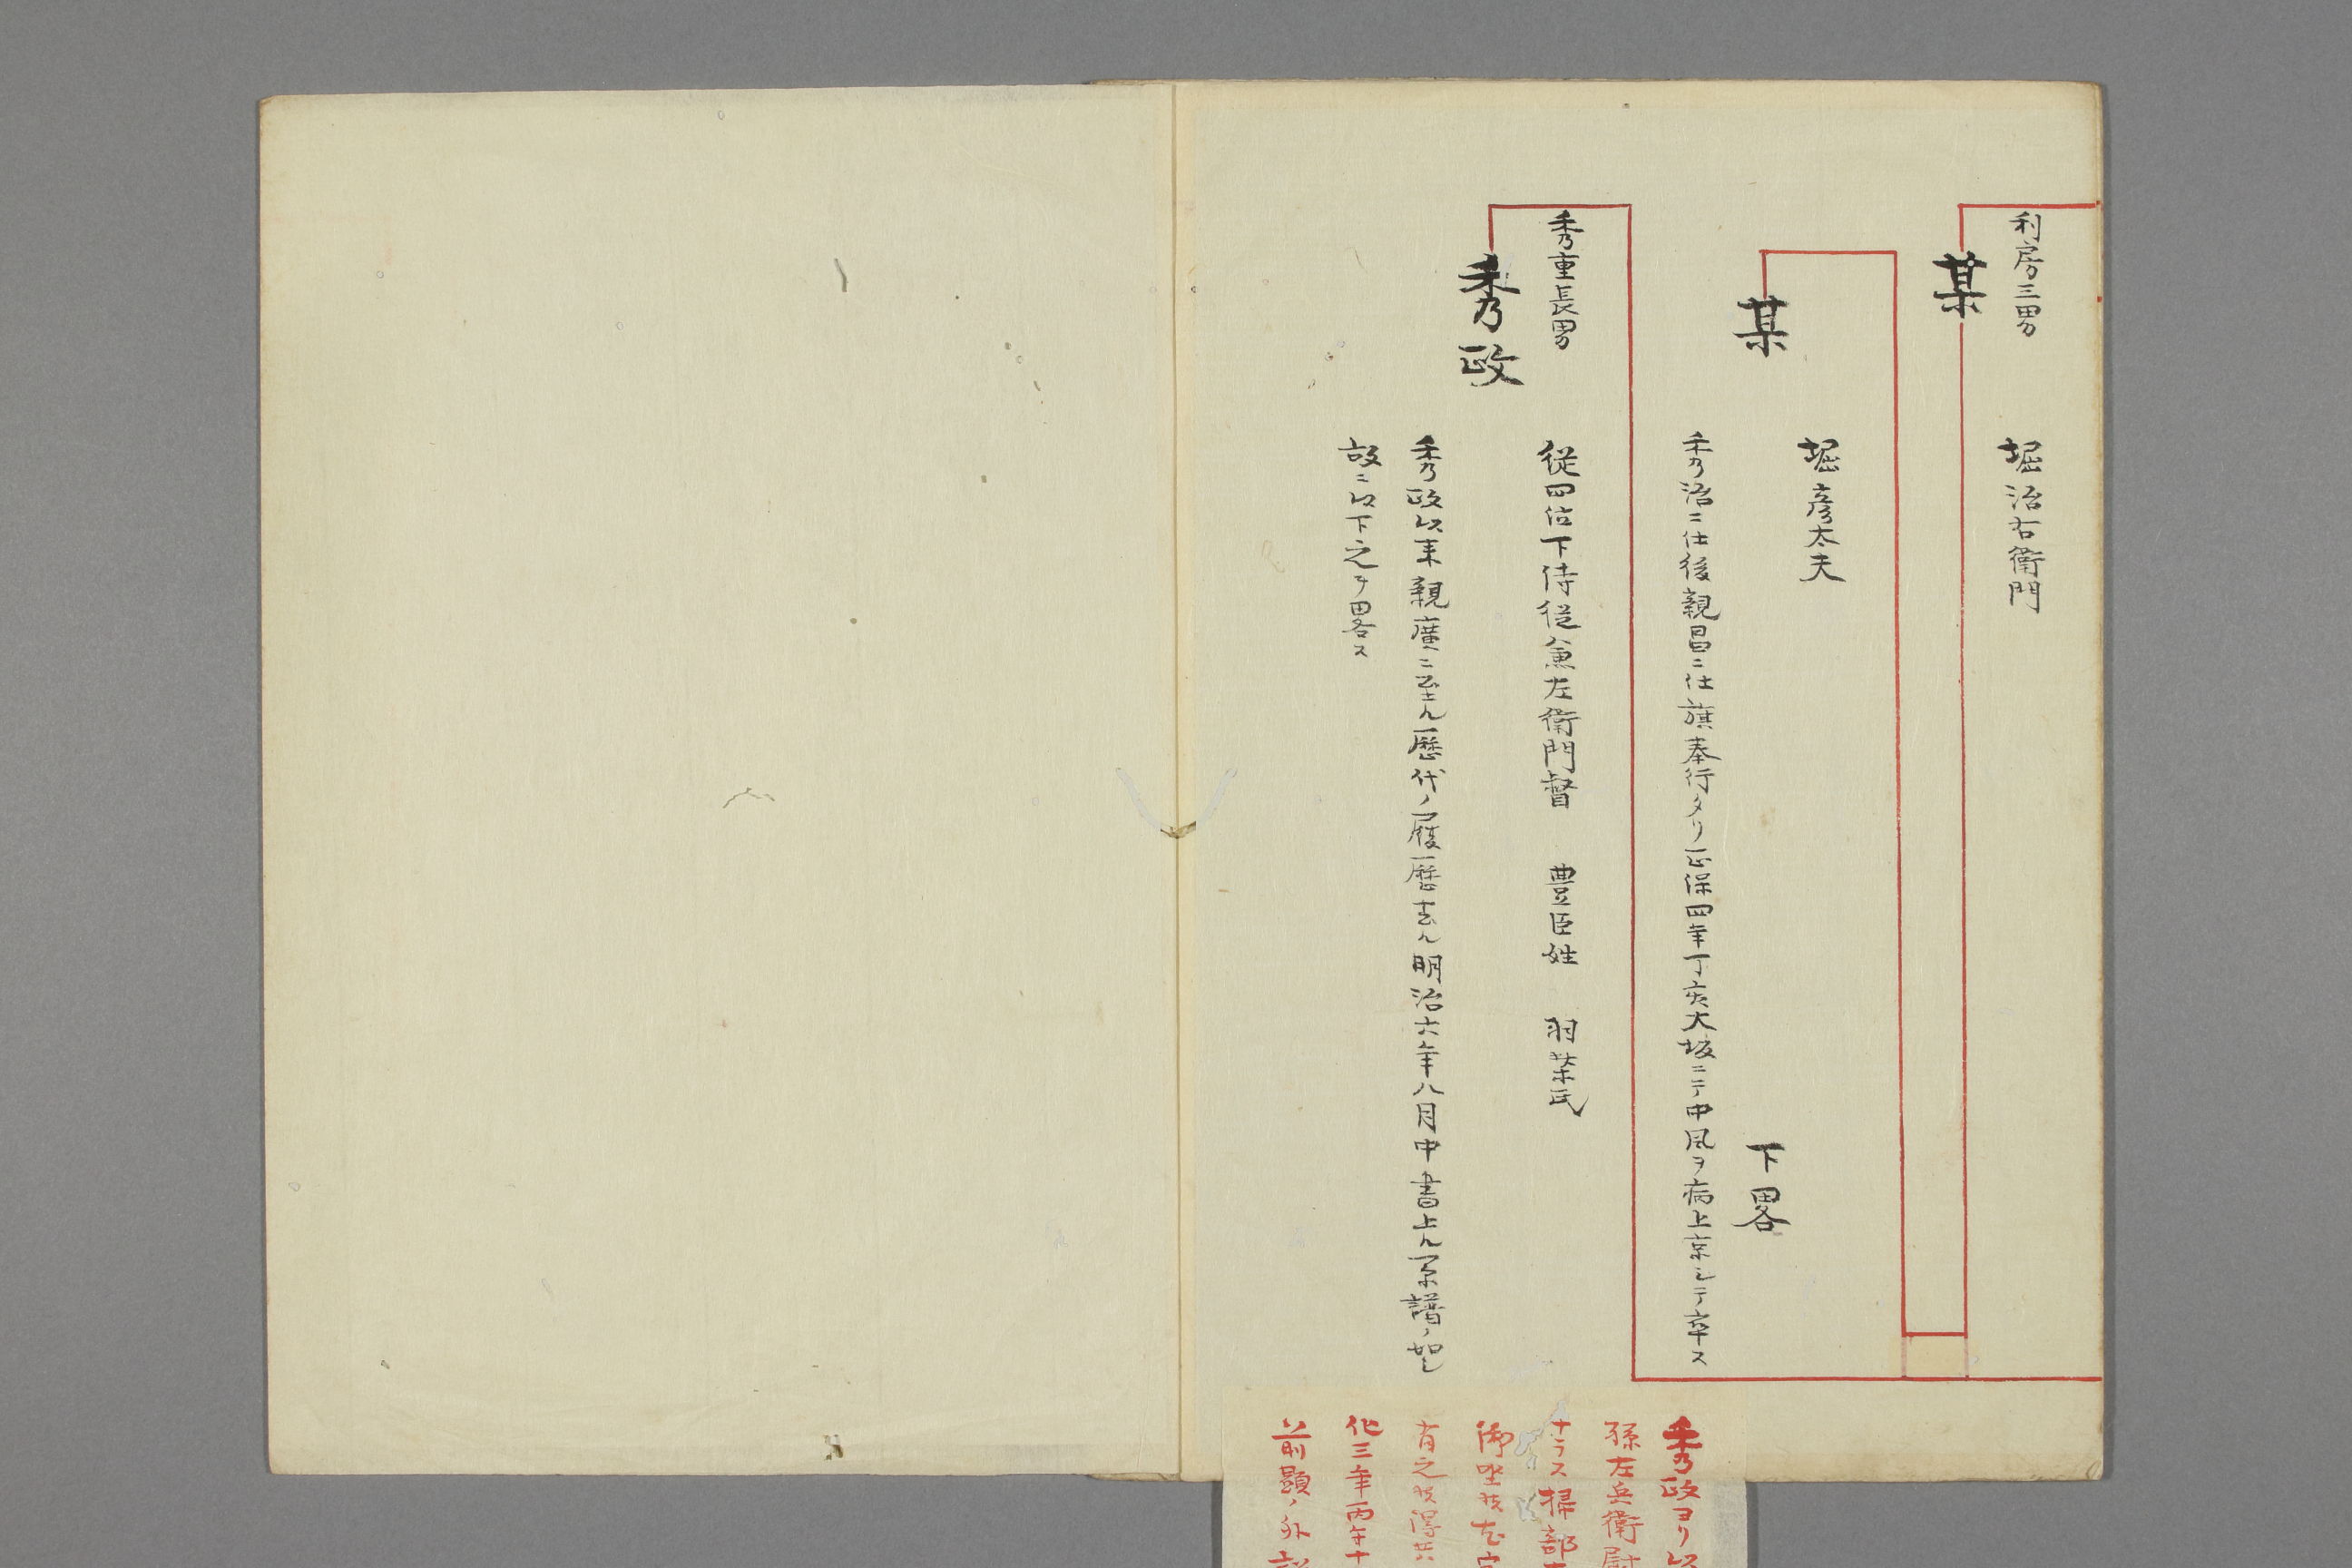 利房三男
堀治右衛門
某
堀彦太夫
某
下畧
秀治ニ仕後親昌ニ仕旗奉行タリ正保四年丁亥大坂ニテ中風ヲ病上京シテ卒ス
秀重長男
従四位下侍従兼左衛門督 豊臣姓 羽柴氏
秀政
秀政以来親廣ニ至ル歴代ノ履歴去ル明治六年八月中書上ル系譜ノ如シ
故ニ以下之ヲ畧ス
秀政ヨリ以
孫左兵衛尉
ナラス掃部
御坐候
有之候得共
化三年丙午十
前顕ノ外